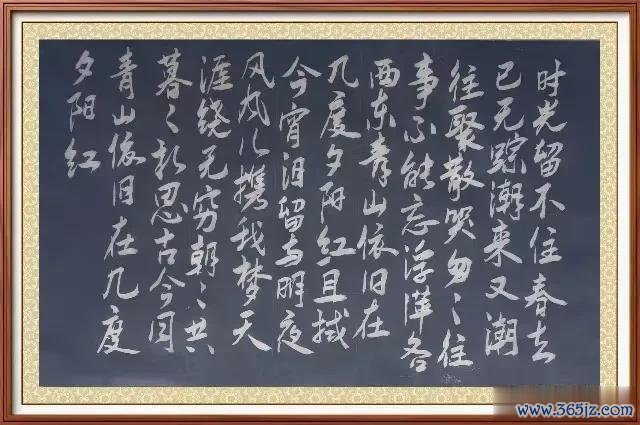 时光留不住春去
已无踪潮来又潮
往聚散哭匆〻往
事不能忘浮萍各
西东青山依旧在
几度夕阳红且拭
今宵泪留与明夜
风风儿携我梦天
涯绕无穷朝〻共
暮〻相思古今同
青山依旧在几度
夕阳红
www.365jz.com